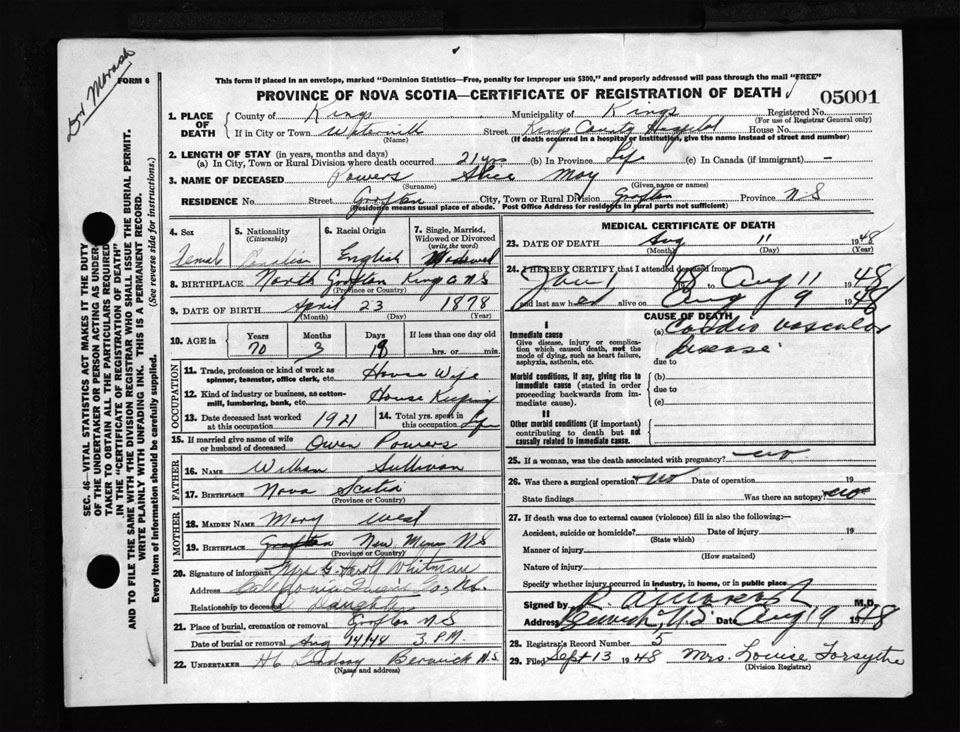 Dr Morash
FORM 6
This form if placed in an envelope, marked "Dominion Statistics—Free, penalty for improper use $300," and properly addressed will pass through the mail "FREE"
PROVINCE OF NOVA SCOTIA—CERTIFICATE OF REGISTRATION OF DEATH
05001
1. PLACE OF DEATH
County of Kings Municipality of Kings Registered No.
(For use of Registrar General only)
If in City or Town Waterville Street Kings County Hospital House No.
(Name) (If death occurred in a hospital or institution, give the name instead of street and number)
2. LENGTH OF STAY (in years, months and days)
(a) In City, Town or Rural Division where death occurred 21 yrs (b) In Province Life (c) In Canada (if immigrant) —
3. NAME OF DECEASED Powers May
(Surname) (Given name or names)
RESIDENCE No. Street Grafton City, Town or Rural Division Grafton Province N S
(Residence means usual place of abode. Post Office Address for residents in rural parts not sufficient)
4. Sex
5. Nationality
(Citizenship)
6. Racial Origin
7. Single, Married, Widowed or Divorced
(write the word)
Female Canadian English Widowed
8. BIRTHPLACE North Grafton Kings Co N S
(Province or Country)
9. DATE OF BIRTH April 23 1878
(Month) (Day) (Year)
10. AGE in Years Months Days If less than one day old
70 3 18 hrs. or min.
OCCUPATION
11. Trade, profession or kind of work as spinner, teamster, office clerk, etc. House Wife
12. Kind of industry or business, as cotton-mill, lumbering, bank, etc. House Keeping
13. Date deceased last worked at this occupation 1921 14. Total yrs. spent in this occupation Life
15. If married give name of wife or husband of deceased Owen Powers
FATHER
16. NAME William Sullivan
17. BIRTHPLACE Nova Scotia
(Province or Country)
MOTHER
18. MAIDEN NAME Mary West
19. BIRTHPLACE Grafton N S
(Province or Country)
20. Signature of informant Mrs G Whitman
Address California Queens Co, N.B.
Relationship to deceased Daughter
21. Place of burial, cremation or removal Grafton N S
Date of burial or removal Aug 14/48 3 P.M.
22. UNDERTAKER H C Lindsay Berwick N.S.
MEDICAL CERTIFICATE OF DEATH
23. DATE OF DEATH Aug 11 1948
(Month) (Day) (Year)
24. I HEREBY CERTIFY that I attended deceased from
Jan 1 1948 to Aug 11 1948
and last saw h er alive on Aug 9 1948
CAUSE OF DEATH
I
Immediate cause
Give disease, injury or complication which caused death, not the mode of dying, such as heart failure, asphyxia, asthenia, etc.
(a) Cardio vascular disease
due to
Morbid conditions, if any, giving rise to immediate cause (stated in order proceeding backwards from immediate cause).
(b)
due to
(c)
II
Other morbid conditions (if important) contributing to death but not causally related to immediate cause.
25. If a woman, was the death associated with pregnancy? no
26. Was there a surgical operation? No Date of operation 19
State findings Was there an autopsy? no
27. If death was due to external causes (violence) fill in also the following:—
Accident, suicide or homicide? Date of injury 19
(State which)
Manner of injury
(How sustained)
Nature of injury
Specify whether injury occurred in industry, in home, or in public place
Signed by R. A. Morash M.D.
Address Berwick, N.S. Date Aug 19 1948
28. Registrar's Record Number 5
29. Filed Sept 13 1948 Mrs. Louise Forsythe
(Division Registrar)
SEC. 46—VITAL STATISTICS ACT MAKES IT THE DUTY
OF THE UNDERTAKER OR PERSON ACTING AS UNDERTAKER TO OBTAIN ALL THE PARTICULARS REQUIRED
IN THE "CERTIFICATE OF REGISTRATION OF DEATH"
AND TO FILE THE SAME WITH THE DIVISION REGISTRAR WHO SHALL ISSUE THE BURIAL PERMIT.
WRITE PLAINLY WITH UNFADING INK. THIS IS A PERMANENT RECORD.
Every item of information should be carefully supplied. (See reverse side for instructions.)